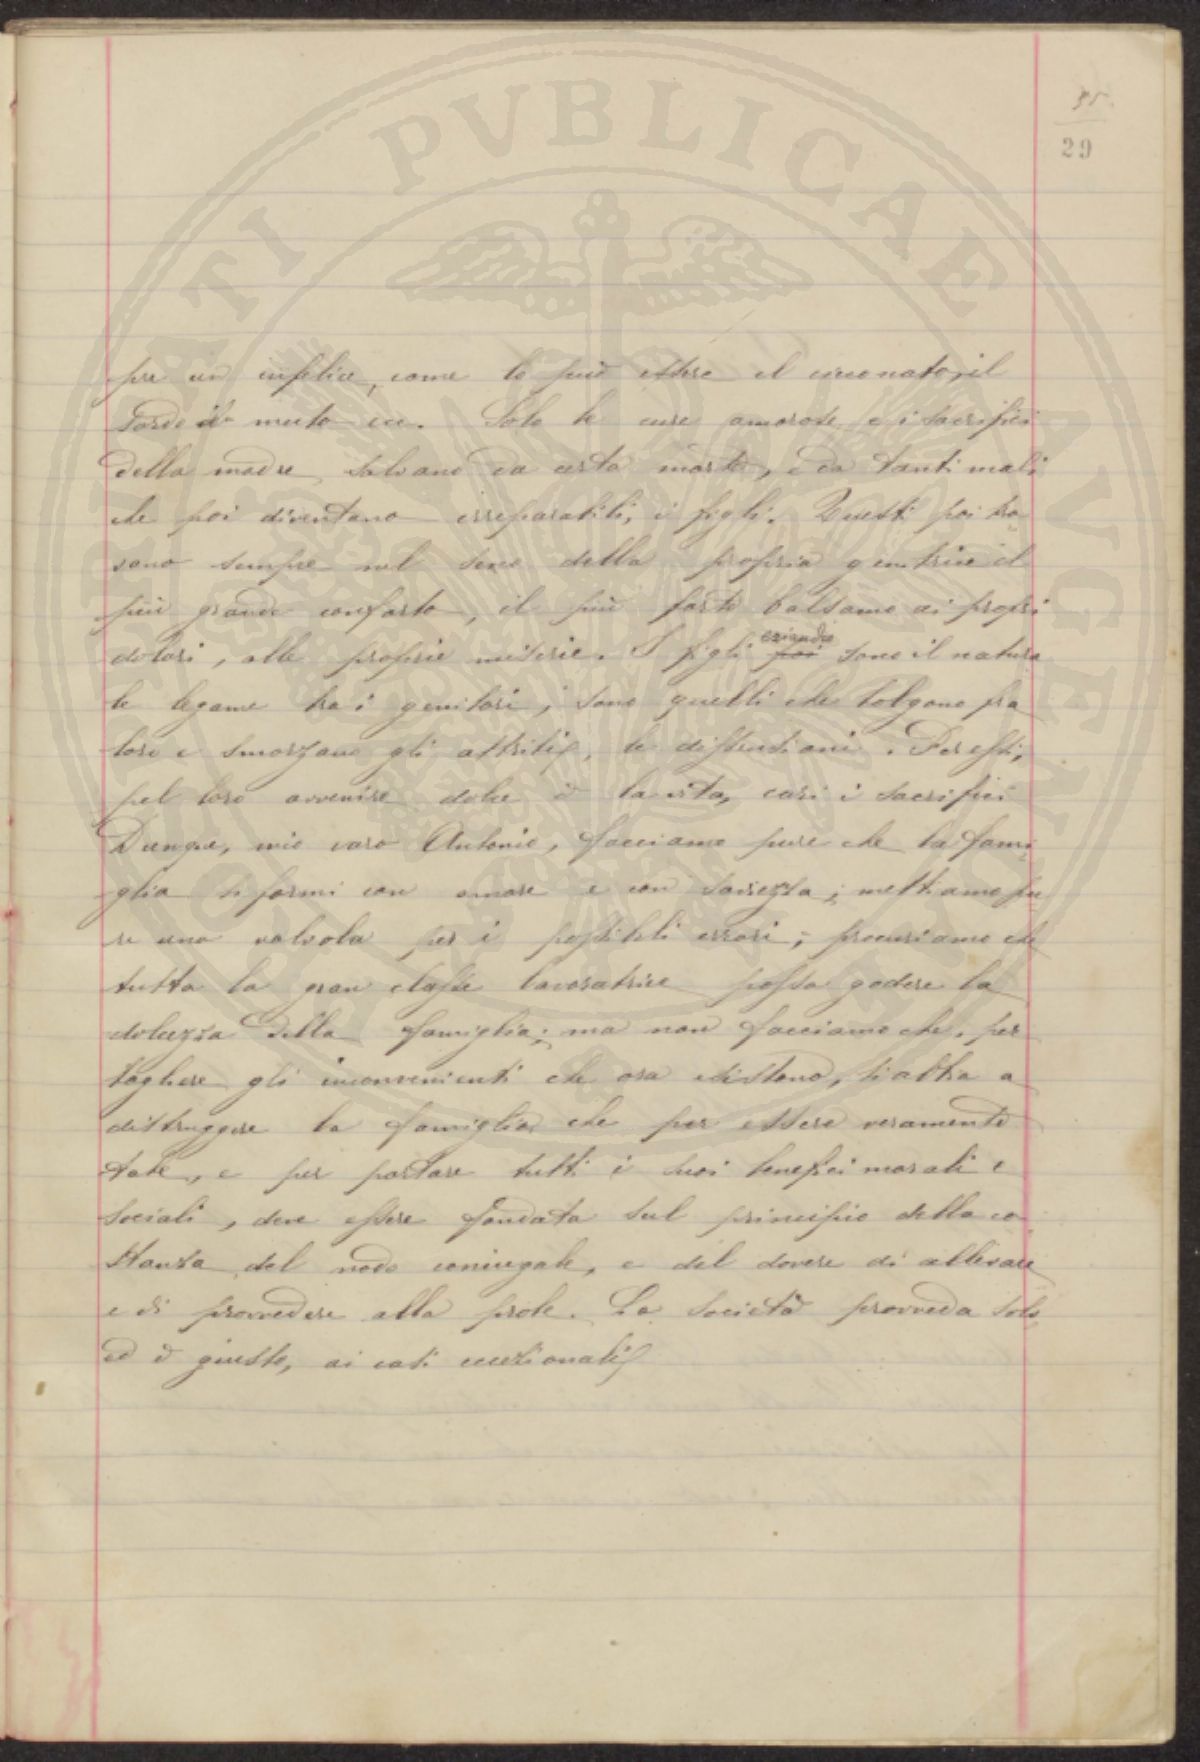 PVBLICAE
29
per un infelice, come lo può essere il cieco nato, il
sordo il muto ecc. Solo le cure amorose e i sacrifici
della madre salvano da certa morte, e da tanti mali
che poi diventano irreparabili, i figli. Questi poi tro
vano sempre nel seno della propria genitrice il
più grande conforto, il più forte balsamo ai propri
dolori, alle proprie miserie. I figli poi eziandio sono il natura
le legame tra i genitori, sono quelli che tolgono fra
loro e smorzano gli attriti, le dissensioni. Per essi,
pel loro avvenire dolce è la vita, cari i sacrifici
Dunque, mio caro Antonio, facciamo pure che la fami
glia si formi con amore e con saviezza; mettiamo pu
re una valvola per i possibili errori; procuriamo che
tutta la gran classe lavoratrice possa godere la
dolcezza della famiglia; ma non facciamo che, per
togliere gli inconvenienti che ora esistono, si abbia a
distruggere la famiglia che per essere veramente
tale, e per portare tutti i suoi benefici morali e
sociali, deve essere fondata sul principio della co
stanza del nodo coniugale, e del dovere di allevare
e di provvedere alla prole. La società provveda solo,
ed è giusto, ai casi eccezionali